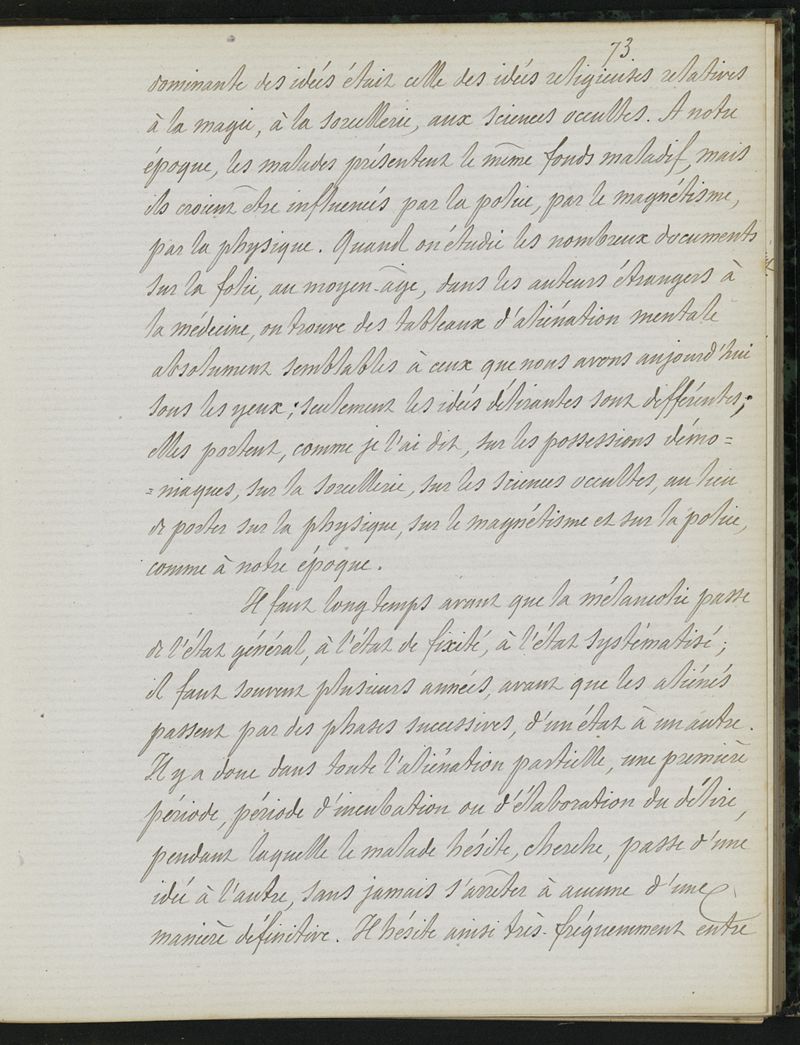 73
dominante des idées était celle des idées religieuses relatives
à la magie, à la sorcellerie, aux sciences occultes. A notre
époque, les malades présentent le même fonds maladif, mais
ils croient être influencés par la police, par le magnétisme,
par la physique. Quand on étudie les nombreux documents
sur la folie, au moyen-âge, dans les auteurs étrangers à
la médecine, on trouve des tableaux d'aliénation mentale
absolument semblables à ceux que nous avons aujourd'hui
sous les yeux ; seulement les idées délirantes sont différentes ;
elles portent, comme je l'ai dit, sur les possessions démo=
=niaques, sur la sorcellerie, sur les sciences occultes, au lieu
de porter sur la physique, sur le magnétisme et sur la police,
comme à notre époque.
Il faut longtemps avant que la mélancolie passe
de l'état général, à l'état de fixité, à l'état systématisé ;
il faut souvent plusieurs années, avant que les aliénés
passent par des phases successives, d'un état à un autre.
Il y a donc dans toute l'aliénation partielle, une première
période, période d'incubation ou d'élaboration du délire,
pendant laquelle le malade hésite, cherche, passe d'une
idée à l'autre, sans jamais s'arrêter à aucune d'une
manière définitive. Il hésite ainsi très-fréquemment entre